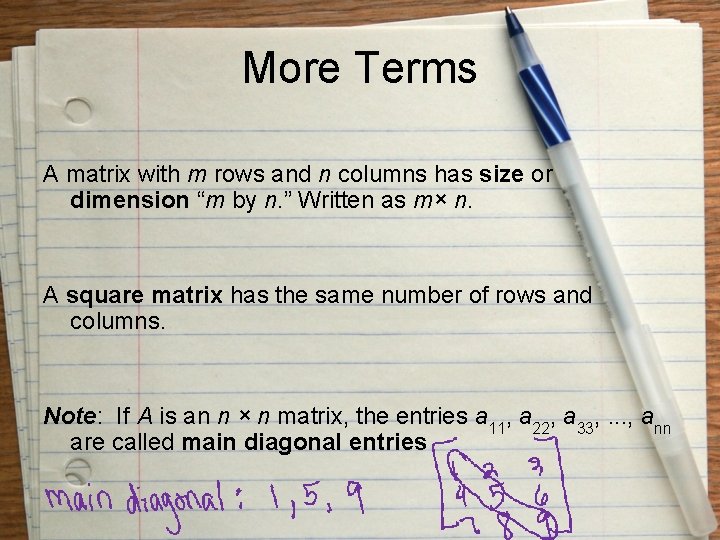 More Terms
A matrix with m rows and n columns has size or
dimension “m by n.” Written as m× n.
A square matrix has the same number of rows and
columns.
Note: If A is an n × n matrix, the entries a11, a22, a33, ..., ann
are called main diagonal entries
1 2 3
main diagonal: 1, 5, 9 4 5 6
7 8 9